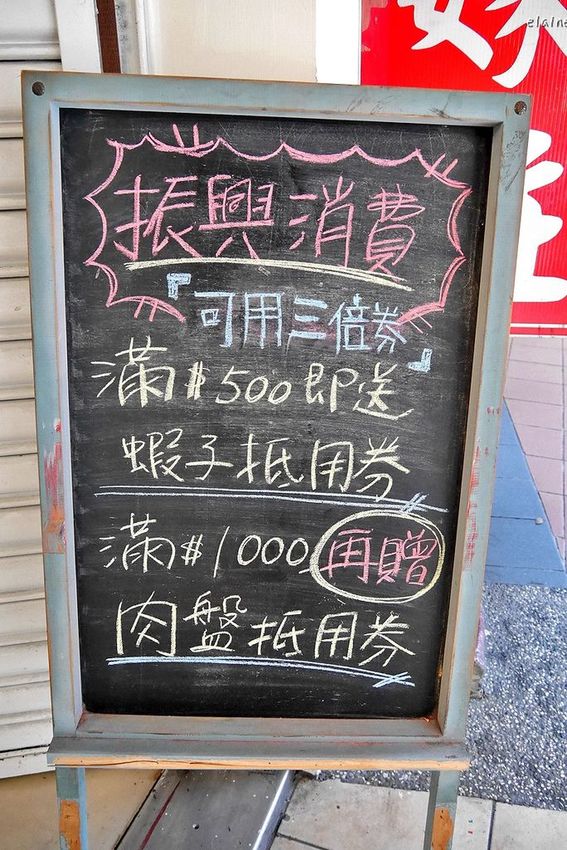 elaine
振興消費
『可用三倍券』
滿$500即送
蝦子抵用券
滿$1000再贈
肉盤抵用券